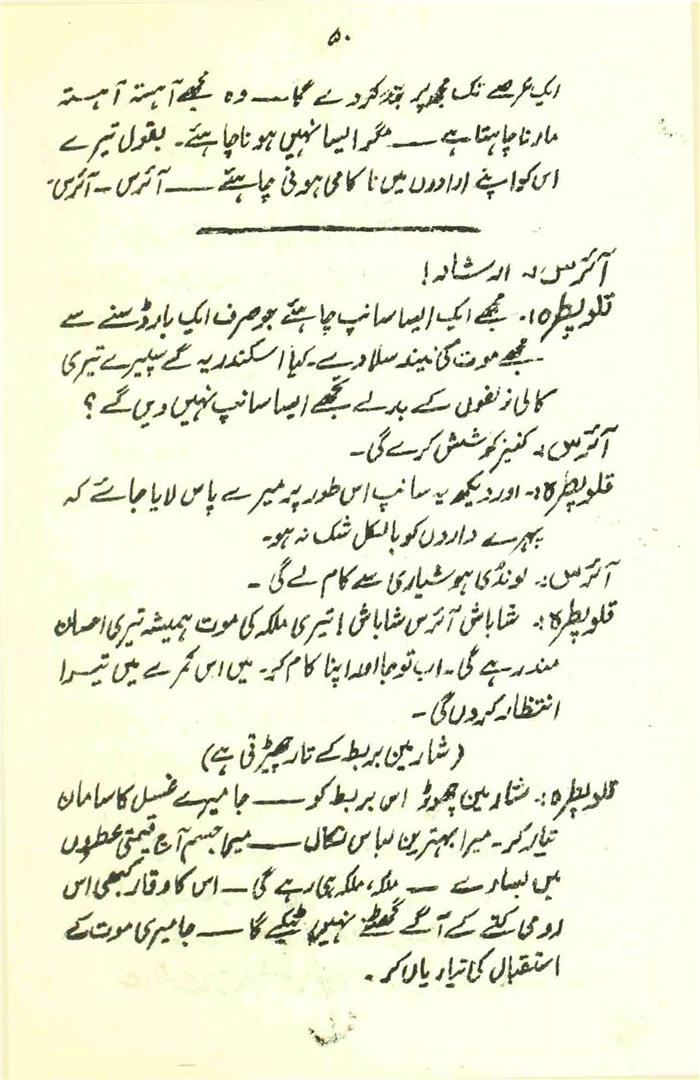 ۵۰
ایک عرصے تک مجھ پر بند کر دے گا — وہ مجھے آہستہ آہستہ
مارنا چاہتا ہے — مگر ایسا نہیں ہونا چاہئے۔ بقول تیرے
اس کو اپنے ارادوں میں ناکامی ہونی چاہئے — آئرس۔ آئرس۔
آئرس:۔ ارشاد!
قلوپطرہ:۔ مجھے ایک ایسا سانپ چاہئے جو صرف ایک بار ڈسنے سے
مجھے موت کی نیند سلا دے۔ کیا اسکندریہ کے سپیرے تیری
کالی زلفوں کے بدلے تجھے ایسا سانپ نہیں دیں گے؟
آئرس:۔ کنیز کوشش کرے گی۔
قلوپطرہ:۔ اور دیکھ یہ سانپ اس طور پر میرے پاس لایا جائے کہ
پہرے داروں کو بالکل شک نہ ہو۔
آئرس:۔ لونڈی ہوشیاری سے کام لے گی۔
قلوپطرہ:۔ شاباش آئرس شاباش! تیری ملکہ کی موت ہمیشہ تیری احسان
مند رہے گی۔ اب تو جا اور اپنا کام کر۔ میں اس کمرے میں تیرا
انتظار کروں گی۔
(شارمین بربط کے تار چھیڑتی ہے)
قلوپطرہ:۔ شارمین چھوڑ اس بربط کو — جا میرے غسل کا سامان
تیار کر۔ میرا بہترین لباس نکال — میرا جسم آج قیمتی عطروں
میں بسا دے — ملکہ، ملکہ ہی رہے گی — اس کا وقار کبھی اس
رومی کتے کے آگے گھٹنے نہیں ٹیکے گا — جا میری موت کے
استقبال کی تیاریاں کر۔